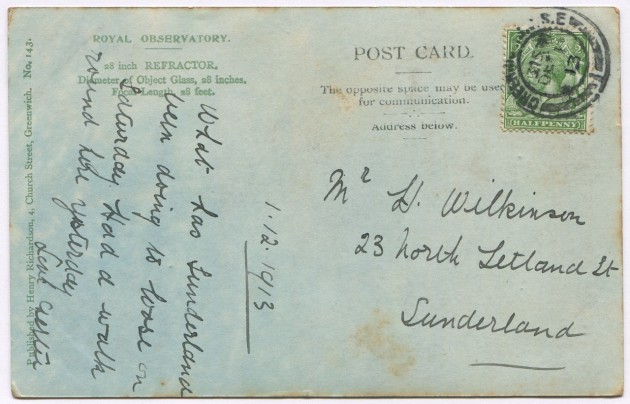 ROYAL OBSERVATORY.
28 inch REFRACTOR,
Diameter of Object Glass, 28 inches.
Focal Length, 28 feet.
Published by Henry Richardson, 4, Church Street, Greenwich. No. 143.
1.12.1913
What has Sunderland
been doing to loose on
Saturday Had a walk
round here yesterday
Love
POST CARD.
The opposite space may be used
for communication.
Address below.
HALFPENNY
GREENWICH S.E.
Mr H. Wilkinson
23 North St
Sunderland